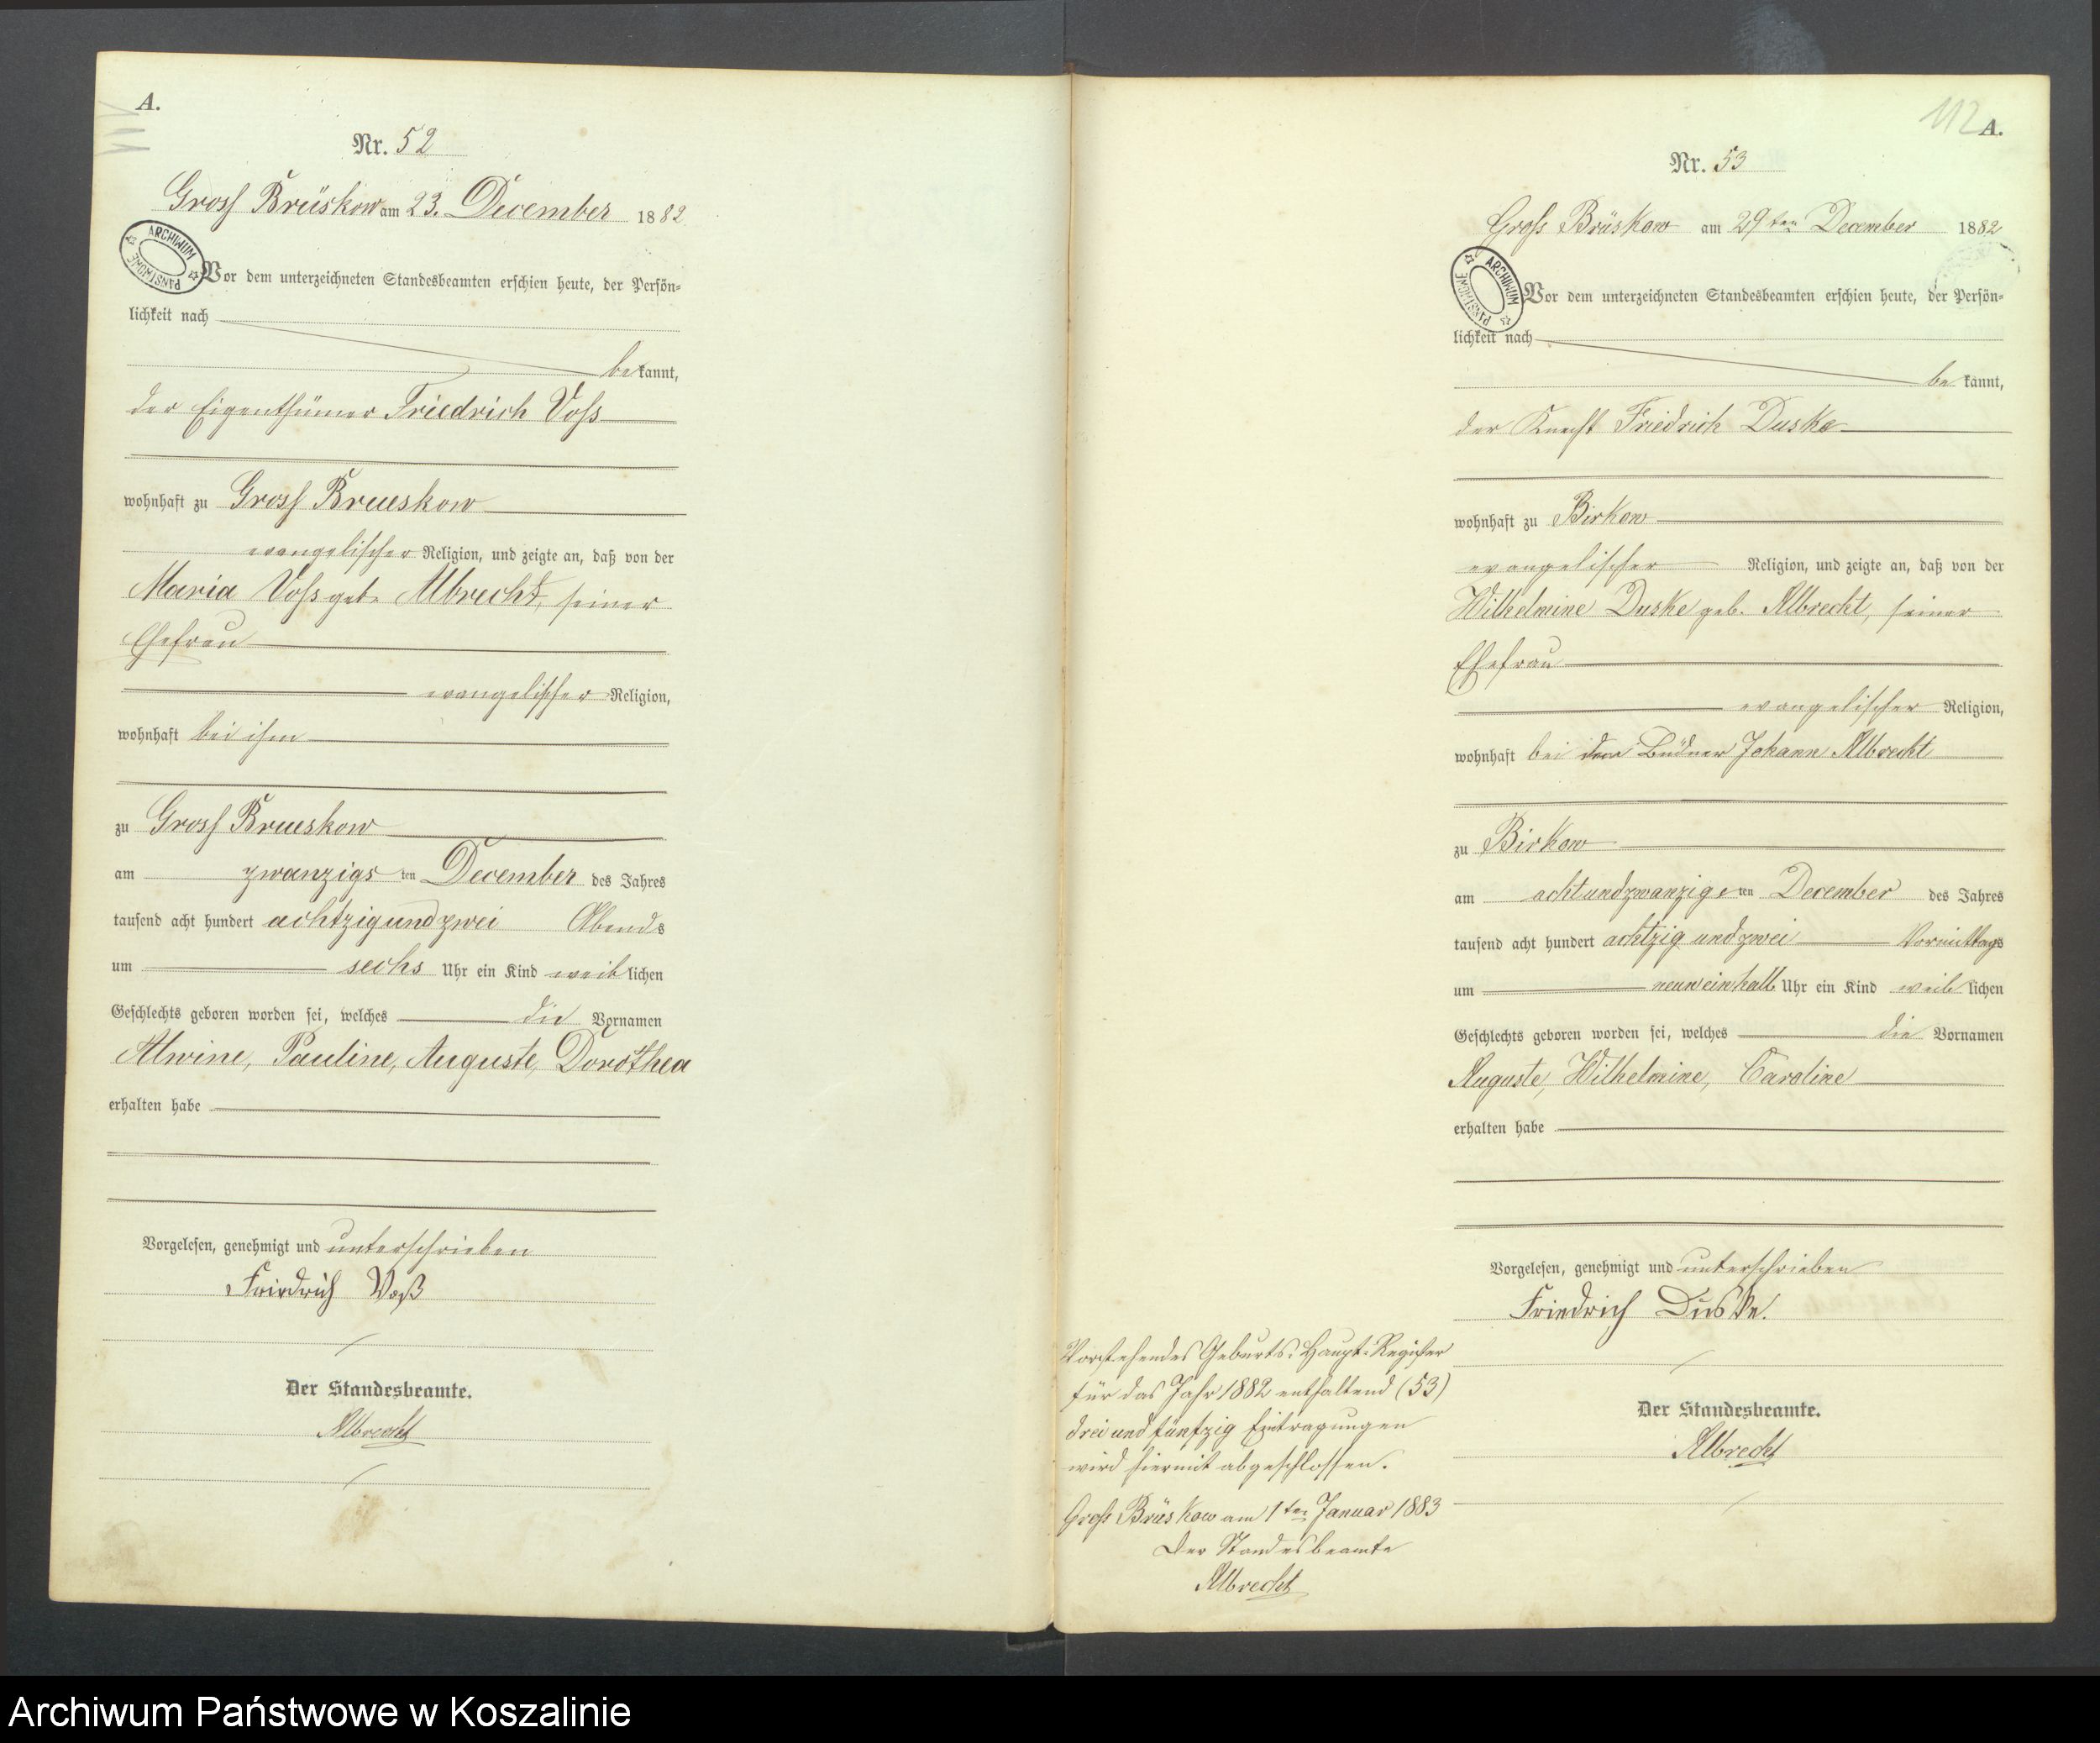 A.
Nr. 52
Gross Brüskow am 23. December 1882
ARCHIWUM PAŃSTWOWE
Vor dem unterzeichneten Standesbeamten erschien heute, der Persön-
lichkeit nach
bekannt,
der Eigenthümer Friedrich Voß
wohnhaft zu Gross Brueskow
evangelischer Religion, und zeigte an, daß von der
Maria Voß geb. Albrecht, seiner
Ehefrau
evangelischer Religion,
wohnhaft bei ihm
zu Gross Brueskow
am zwanzigsten December des Jahres
tausend acht hundert achtzig und zwei Abends
um sechs Uhr ein Kind weiblichen
Geschlechts geboren worden sei, welches die Vornamen
Alwine, Pauline, Auguste, Dorothea
erhalten habe
Vorgelesen, genehmigt und unterschrieben
Friedrich Voß
Der Standesbeamte.
Albrecht
112
A.
Nr. 53
Groß Brüskow am 29ten December 1882
ARCHIWUM PAŃSTWOWE
Vor dem unterzeichneten Standesbeamten erschien heute, der Persön-
lichkeit nach
bekannt,
der Knecht Friedrich Duske
wohnhaft zu Birkow
evangelischer Religion, und zeigte an, daß von der
Wilhelmine Duske geb. Albrecht, seiner
Ehefrau
evangelischer Religion,
wohnhaft bei dem Büdner Johann Albrecht
zu Birkow
am achtundzwanzigsten December des Jahres
tausend acht hundert achtzig und zwei Vormittags
um neuneinhalb Uhr ein Kind weiblichen
Geschlechts geboren worden sei, welches die Vornamen
Auguste, Wilhelmine, Caroline
erhalten habe
Vorgelesen, genehmigt und unterschrieben
Friedrich Duske.
Der Standesbeamte.
Albrecht
Vorstehendes Geburts-Haupt-Register
für das Jahr 1882 enthaltend (53)
drei und fünfzig Eintragungen
wird hiermit abgeschlossen.
Groß Brüskow am 1ten Januar 1883
Der Standesbeamte
Albrecht
Archiwum Państwowe w Koszalinie